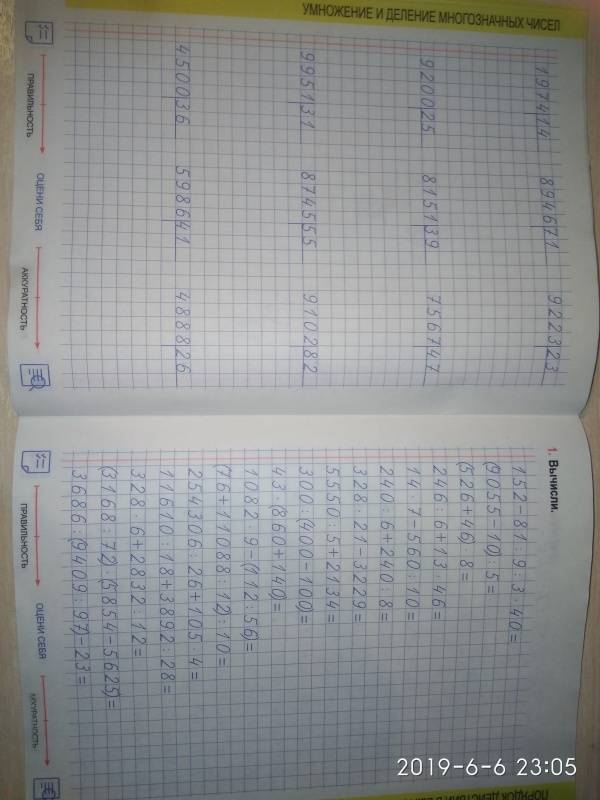 УМНОЖЕНИЕ И ДЕЛЕНИЕ МНОГОЗНАЧНЫХ ЧИСЕЛ
1974|14 8946|71 9223|23
9200|25 8151|39 7567|47
9951|31 8745|55 9102|82
4500|36 5986|41 4888|26
ПРАВИЛЬНОСТЬ ОЦЕНИ СЕБЯ АККУРАТНОСТЬ
1. Вычисли.
152-81:9:3·40=
(9055-10):5=
(526+46)·8=
246:6+13·46=
14·7-560:10=
240:6+240:8=
328·21-3229=
5550:5+2134=
300:(400-100)=
43·(860+140)=
1082·9-(112:56)=
(76+11088:12):10=
254306:26+105·4=
11610:18+3892:28=
328·6+2832:12=
(3168:72)·(5854-5625)=
3686:(9409:97)-23=
ПРАВИЛЬНОСТЬ ОЦЕНИ СЕБЯ АККУРАТНОСТЬ
ПОРЯДОК ДЕЙСТВИЙ В
2019-6-6 23:05